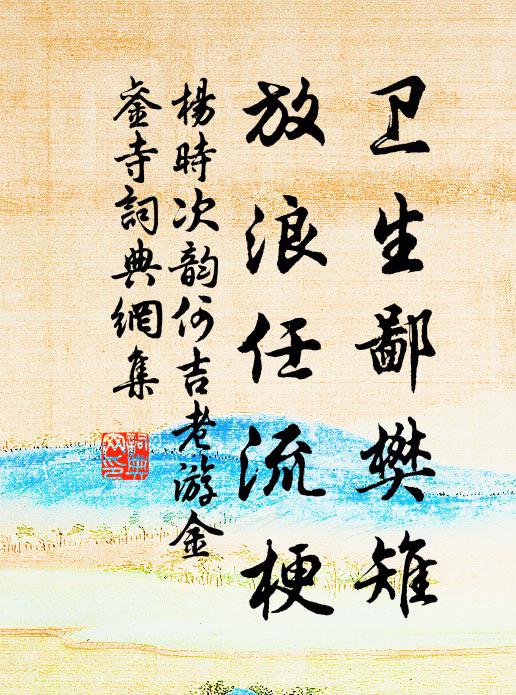 卫生鄙樊雉
放浪任流梗
楊時次韵何吉老游金
銮寺詞典網集